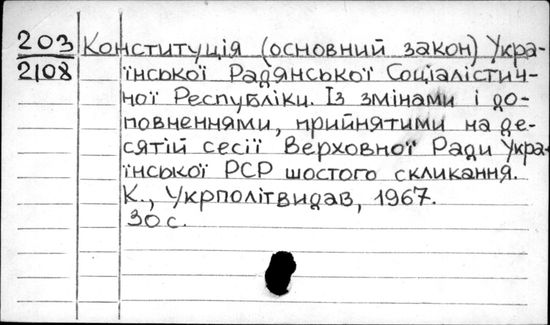 203 Конституція (основний закон) Укра-
2108 їнської Радянської Соціалістич-
ної Республіки. Із змінами і до-
повненнями, прийнятими на де-
сятій сесії Верховної Ради Укра-
їнської РСР шостого скликання.
К., Укрполітвидав, 1967.
30 с.